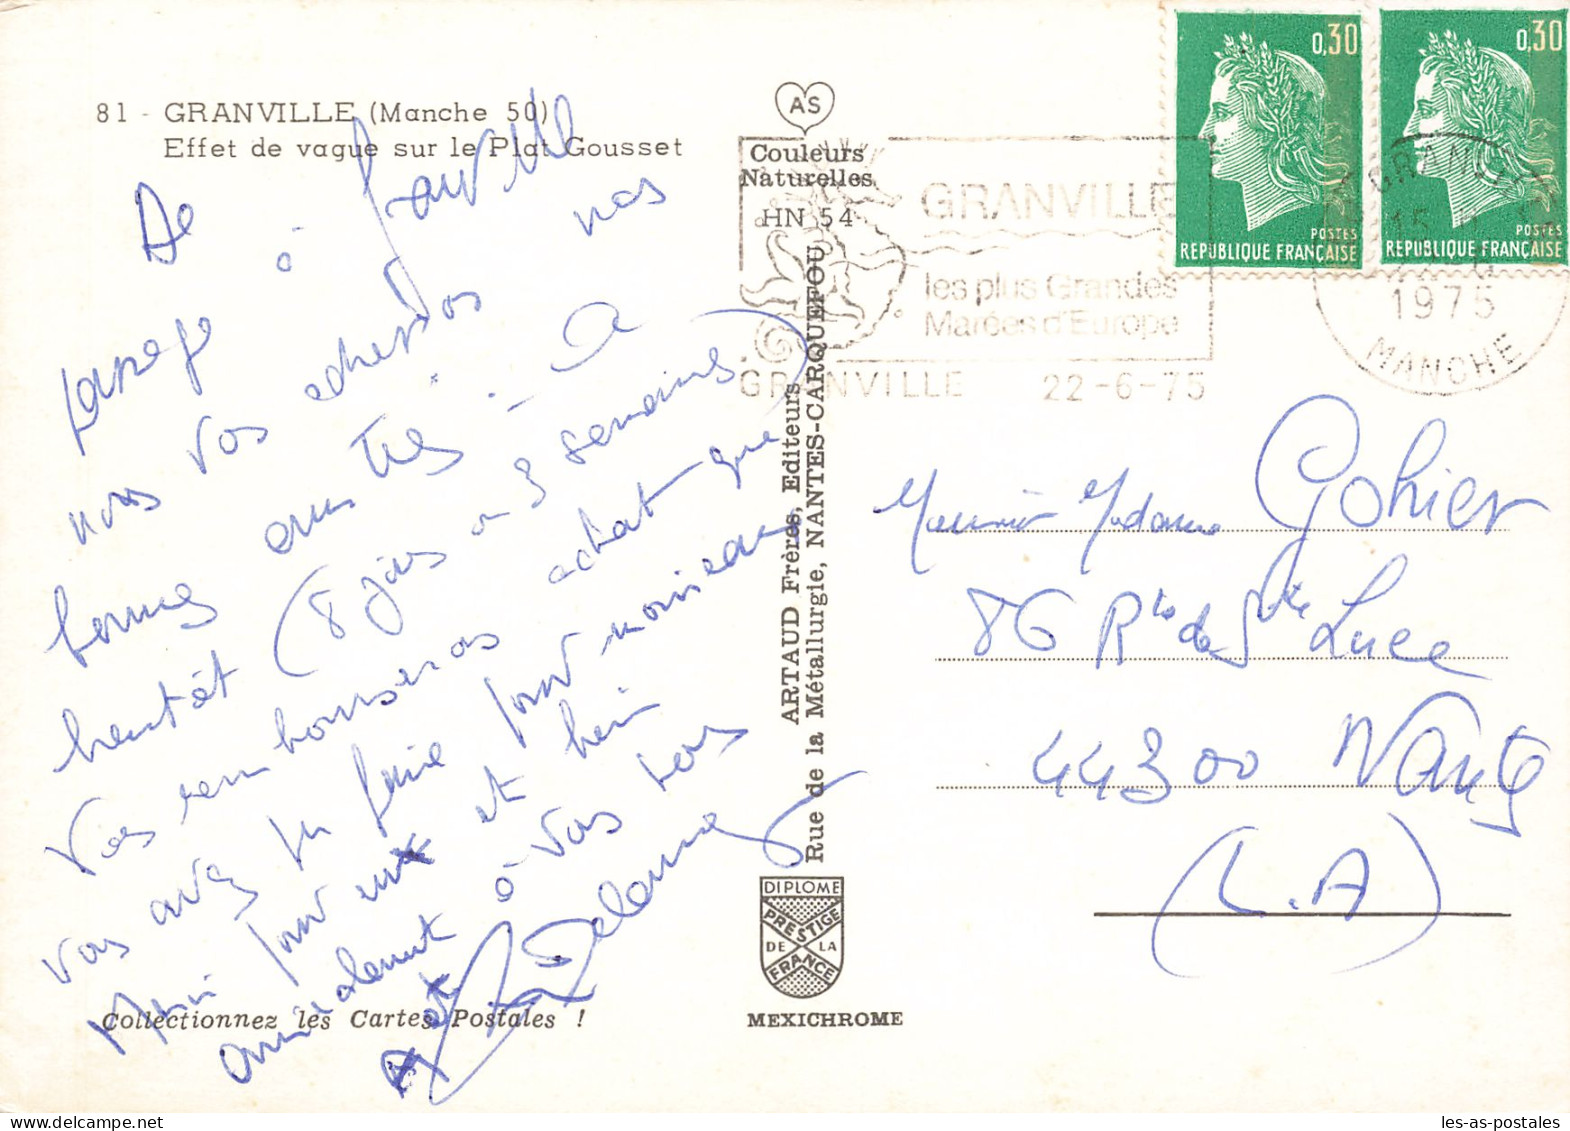 81 - GRANVILLE (Manche 50)
Effet de vague sur le Plat Gousset
De
passage à Granville
nous vous adressons nos
bonnes amitiés - A
bientôt (8 jours ou 3 semaines)
Vous rembourserons achat que
vous avez pu faire pour moineaux
Merci pour eux et bien
amicalement à vous tous
et
Delaunay
Collectionnez les Cartes Postales !
AS
Couleurs
Naturelles
HN 54
ARTAUD Frères, Editeurs
Rue de la Métallurgie, NANTES-CARQUEFOU
DIPLOME
PRESTIGE
DE LA
FRANCE
MEXICHROME
GRANVILLE
les plus Grandes
Marées d'Europe
GRANVILLE 22-6-75
0,30
POSTES
REPUBLIQUE FRANÇAISE
0,30
POSTES
REPUBLIQUE FRANÇAISE
1975
MANCHE
Monsieur Madame Gohier
86 Rte de Ste Luce
44300 Nantes
(L.A)
les-as-postales